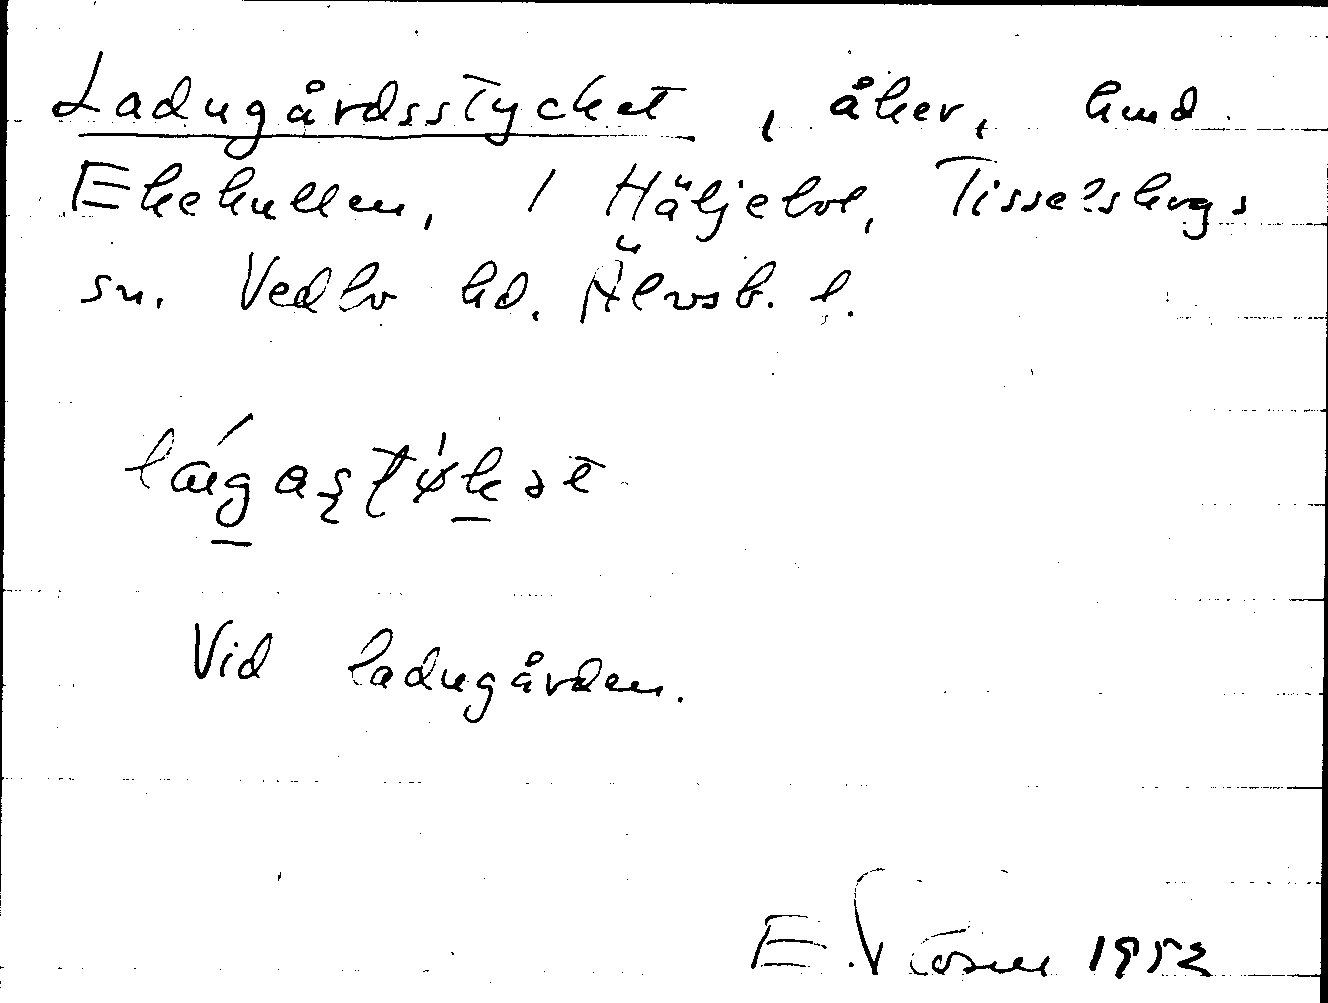 Ladugårdsstycket, åker, hmd
Ekekullen, 1 Häljebol, Tisselskogs
sn. Vedbo hd. Älvsb. l.
Vid ladugården.
E. 1952